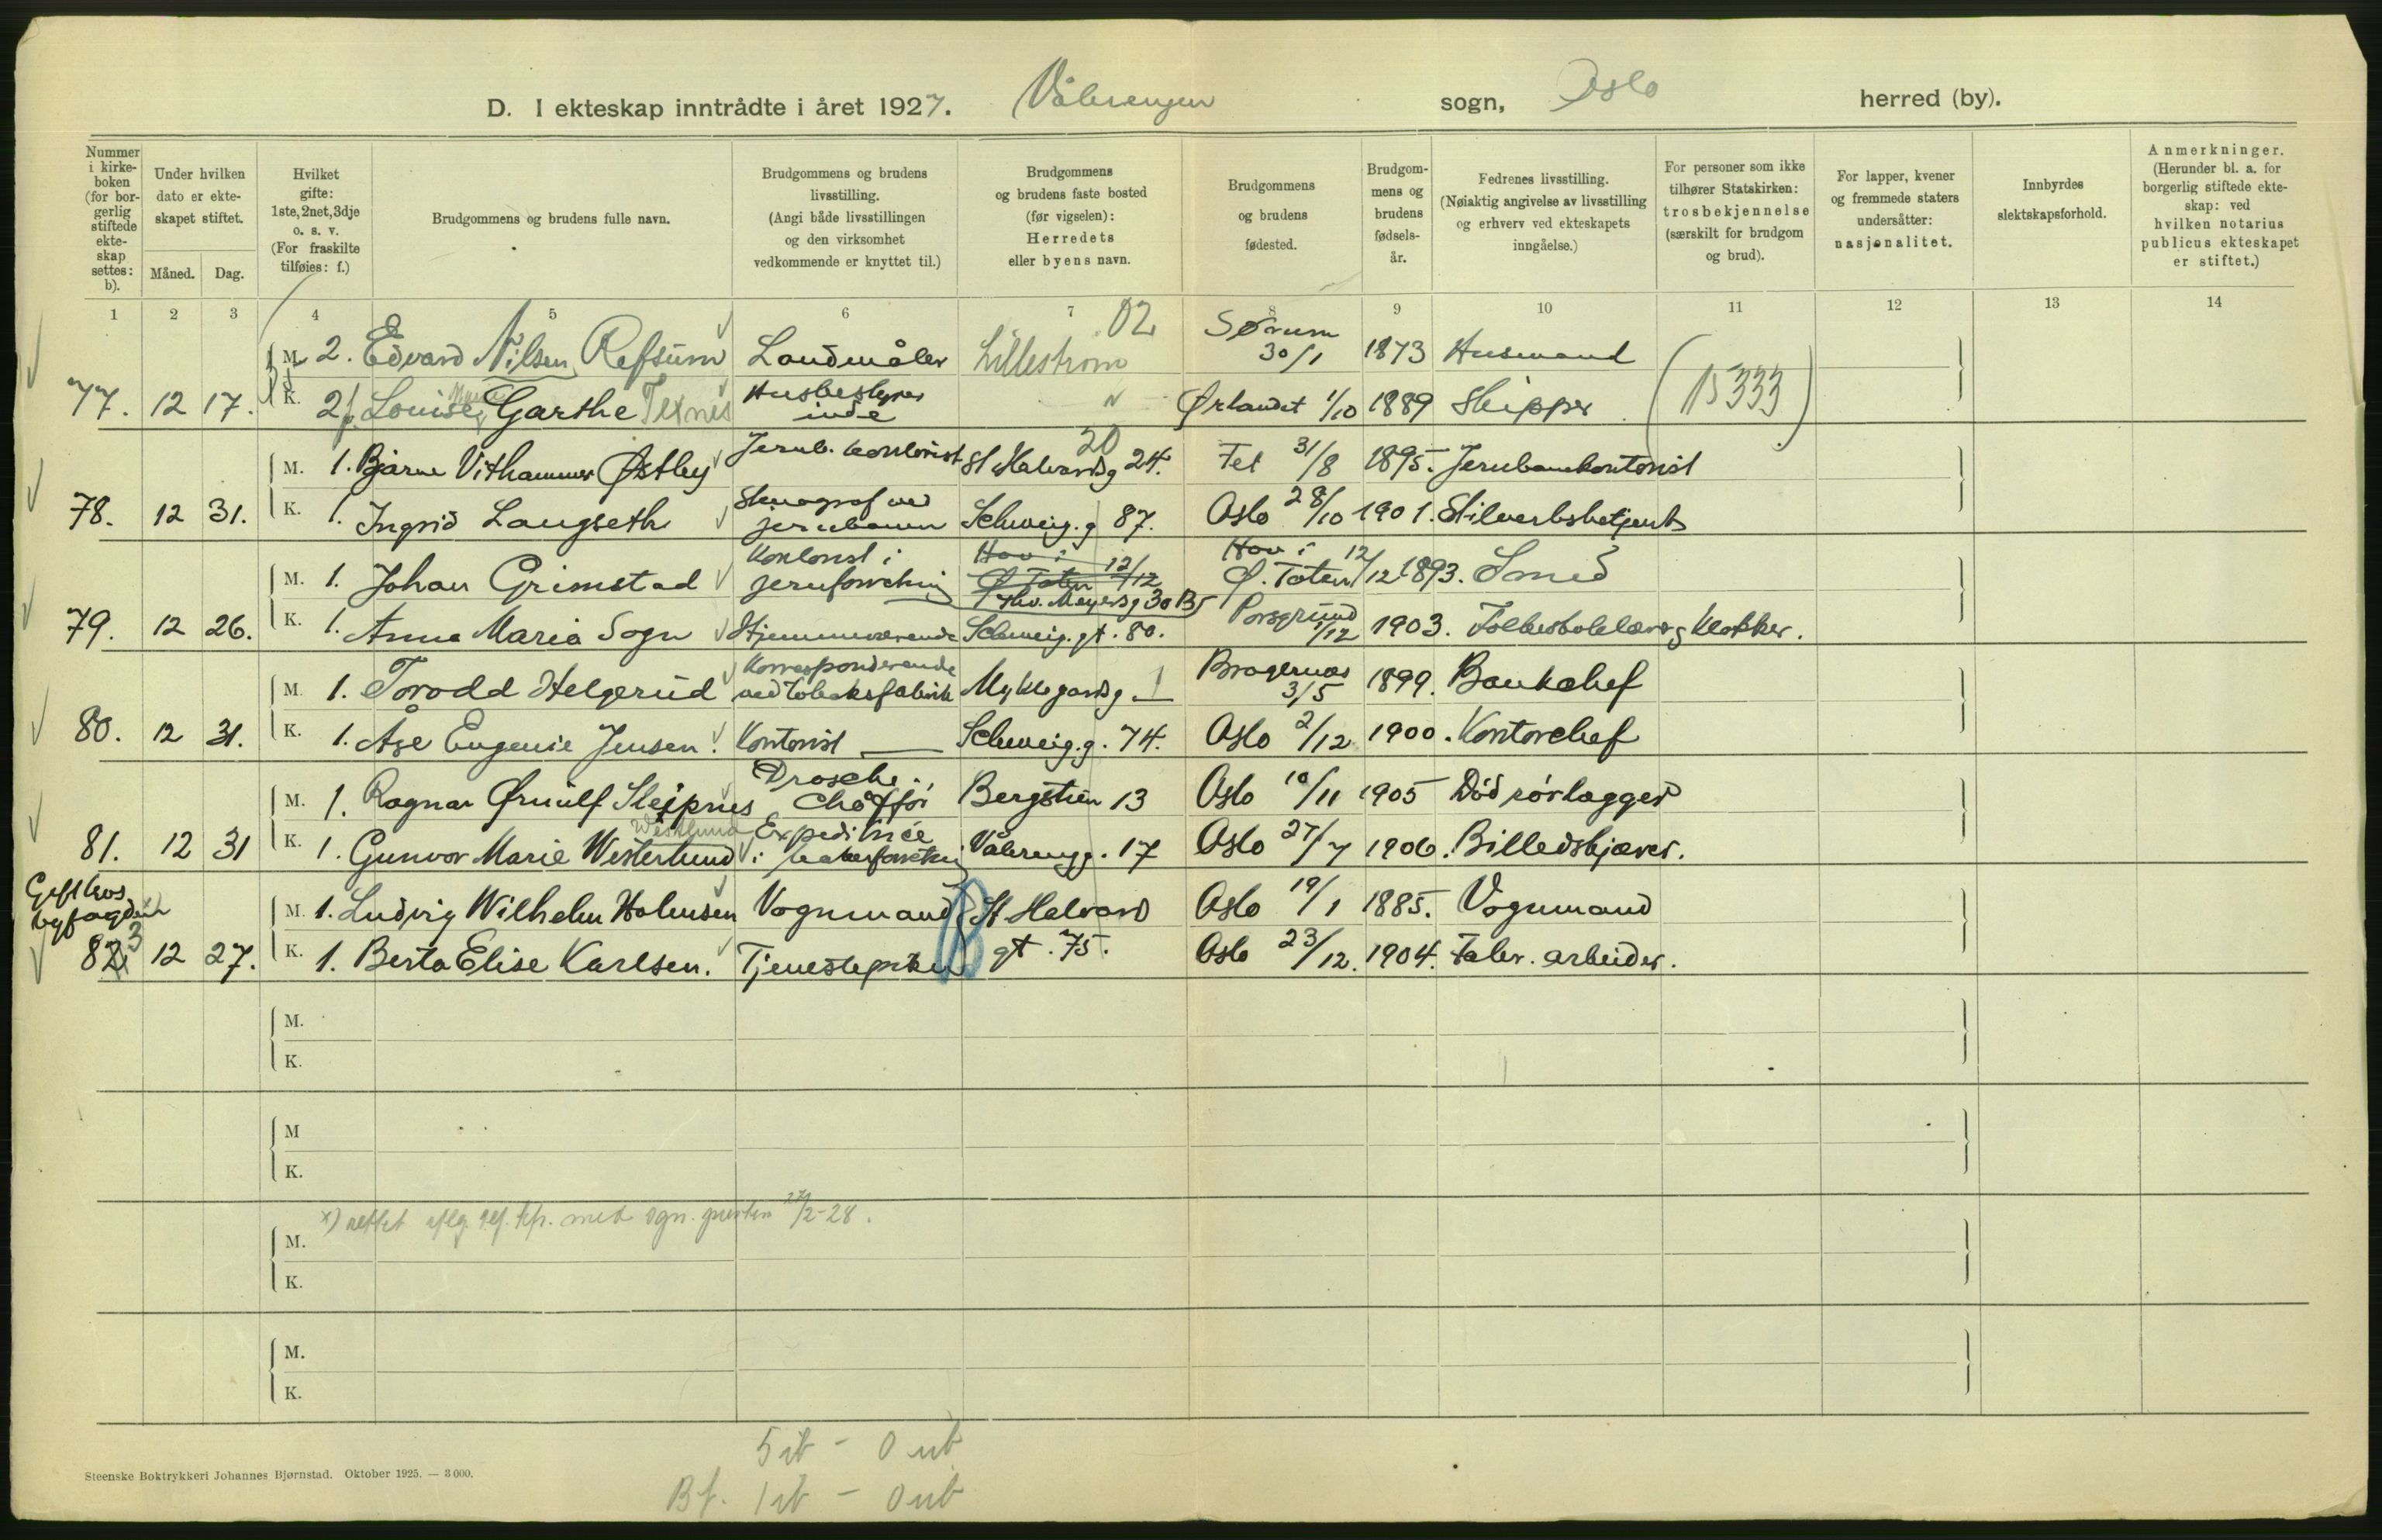 D. I ekteskap inntrådte i året 1927. Vålerengen sogn, Oslo herred (by).
Nummer i kirkeboken (for borgerlig stiftede ekteskap settes: b).
Under hvilken dato er ekteskapet stiftet.
Måned. Dag.
Hvilket gifte: 1ste, 2net, 3dje o. s. v. (For fraskilte tilføies: f.)
Brudgommens og brudens fulle navn.
Brudgommens og brudens livsstilling. (Angi både livsstillingen og den virksomhet vedkommende er knyttet til.)
Brudgommens og brudens faste bosted (før vigselen): Herredets eller byens navn.
Brudgommens og brudens fødested.
Brudgommens og brudens fødselsår.
Fedrenes livsstilling. (Nøiaktig angivelse av livsstilling og erhverv ved ekteskapets inngåelse.)
For personer som ikke tilhører Statskirken: trosbekjennelse (særskilt for brudgom og brud).
For lapper, kvener og fremmede staters undersåtter: nasjonalitet.
Innbyrdes slektskapsforhold.
Anmerkninger. (Herunder bl. a. for borgerlig stiftede ekteskap: ved hvilken notarius publicus ekteskapet er stiftet.)
1 2 3 4 5 6 7 8 9 10 11 12 13 14
02
M. 2. Edvard Nilsen Refsum Landmåler Lillestrøm Sørum 30/1 1873 Husmand
77. 12 17. K. 2f. Louise Garthe Texnes Husbestyrerinde " Ørlandet 1/10 1889 Skipper (B 333)
20
M. 1. Bjarne Vithammer Østby Jernb. kontorist St Halvardsg 24. Fet 31/8 1895. Jernbanekontorist
78. 12 31. K. 1. Ingrid Langseth Stenograf ved jernbanen Schweig. g 87. Oslo 28/10 1901. Stilverksbetjent
M. 1. Johan Grimstad Kontorist i jernforretning Hov i Ø Toten 12/12 Thv. Meyersg 30 B Hov i Ø. Toten 12/12 1893. Smed
79. 12 26. K. 1. Anna Maria Sogn Hjemmeværende Schweig. gt. 80. Porsgrund /12 1903. Folkeskolelærer og Klokker.
M. 1. Torodd Helgerud Korresponderende ved tobaksfabrik Myklegardsg 1 Bragernæs 3/5 1899. Bankchef
80. 12 31. K. 1. Åse Eugenie Jensen. Kontorist Schweig. g. 74. Oslo 2/12 1900. Kontorchef
M. 1. Ragnar Ørnulf Sleipnes Drosche chaffør Bergstien 13 Oslo 10/11 1905 Død rørlægger
Westlund
81. 12 31 K. 1. Gunvor Marie Westerlund Expeditrice i bakerforretning Vålerengg. 17 Oslo 27/7 1906. Billedskjærer.
Gift hos byfogden
M. 1. Ludvig Wilhelm Halvorsen Vognmand St Halvard Oslo 19/1 1885. Vognmand
82 3 12 27. K. 1. Berta Elise Karlsen. Tjenestepike B gt. 75. Oslo 23/12. 1904. Fabr. arbeider.
M.
K.
M
K.
x) rettet iflg. tlf. med sgn. presten 27/2-28.
M.
K.
M.
K.
5 ib - 0 ub
Bf. 1 ib - 0 ub
Steenske Boktrykkeri Johannes Bjørnstad. Oktober 1925. — 3 000.